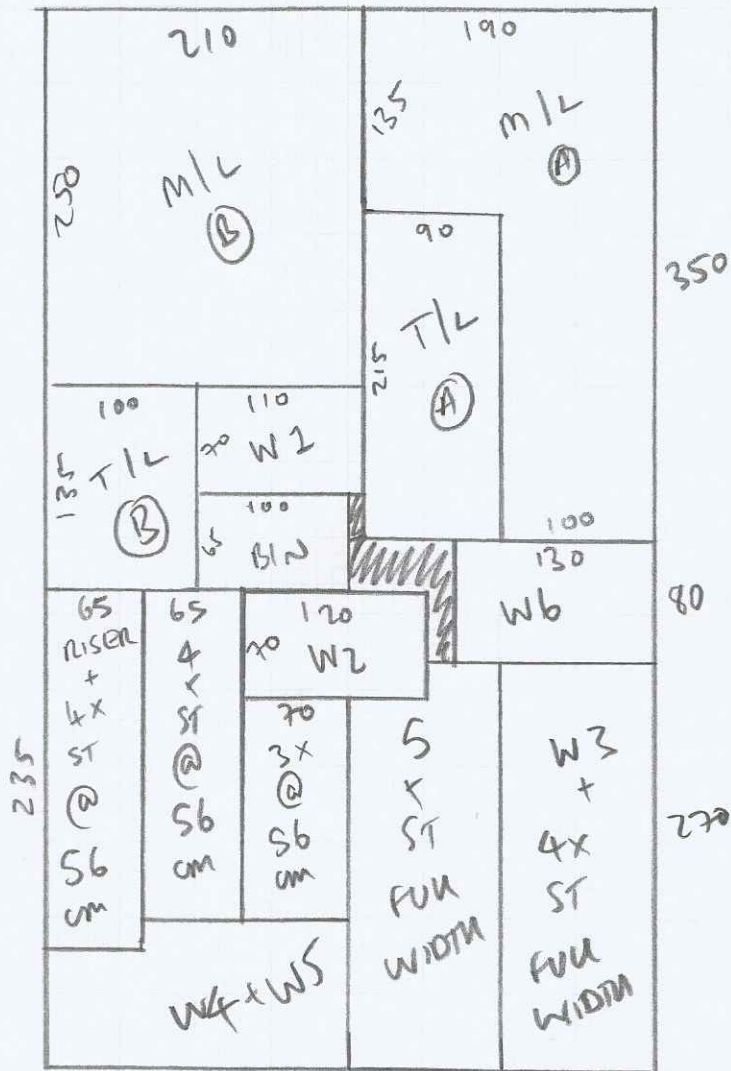 210
250
M/L
B
190
135
M/L
A
350
90
215
T/L
A
100
100
135
T/L
B
110
70 W1
100
65
BIN
130
W6
80
235
65
RISER
+
4x
ST
@
56
cm
65
4
x
ST
@
56
cm
120
70 W2
70
3x
@
56
cm
5
x
ST
FULL
WIDTH
W3
+
4x
ST
FULL
WIDTH
270
W4 + W5